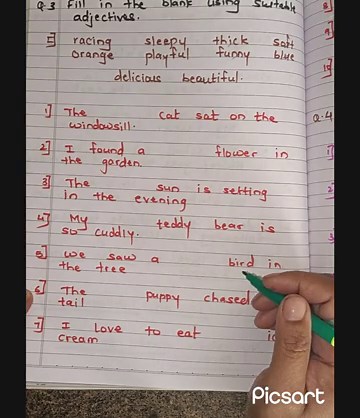 Q.3 Fill in the blank using suitable
adjectives.
racing sleepy thick soft
orange playful funny blue
delicious beautiful.
1] The cat sat on the
windowsill.
2] I found a flower in
the garden.
3] The sun is setting
in the evening
4] My teddy bear is
so cuddly.
5] We saw a bird in
the tree
6] The puppy chased
tail
7] I Love to eat
cream
Q.4
Picsart